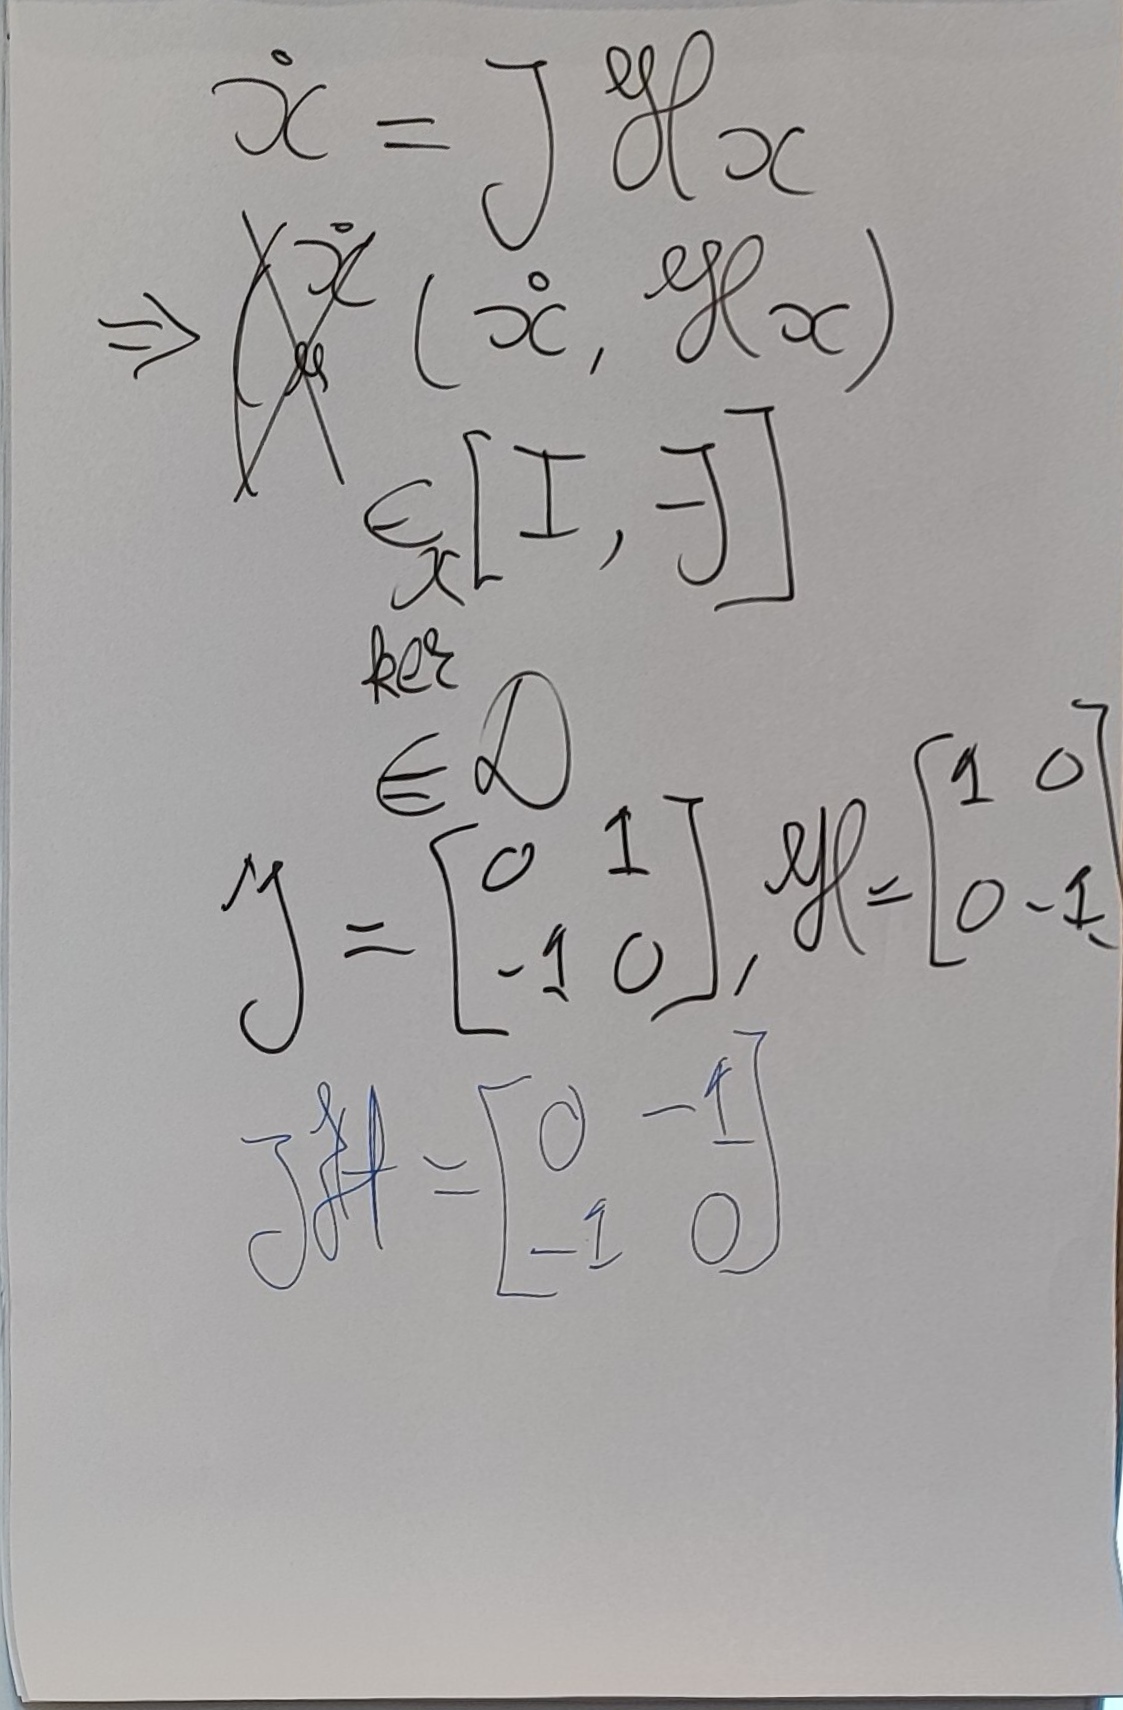 ẋ = J ℋx
⇒ (ẋ, ℋx)
∈ [I, -J]
ker
∈ D
J = [0 1; -1 0], ℋ = [1 0; 0 -1]
Jℋ = [0 -1; -1 0]